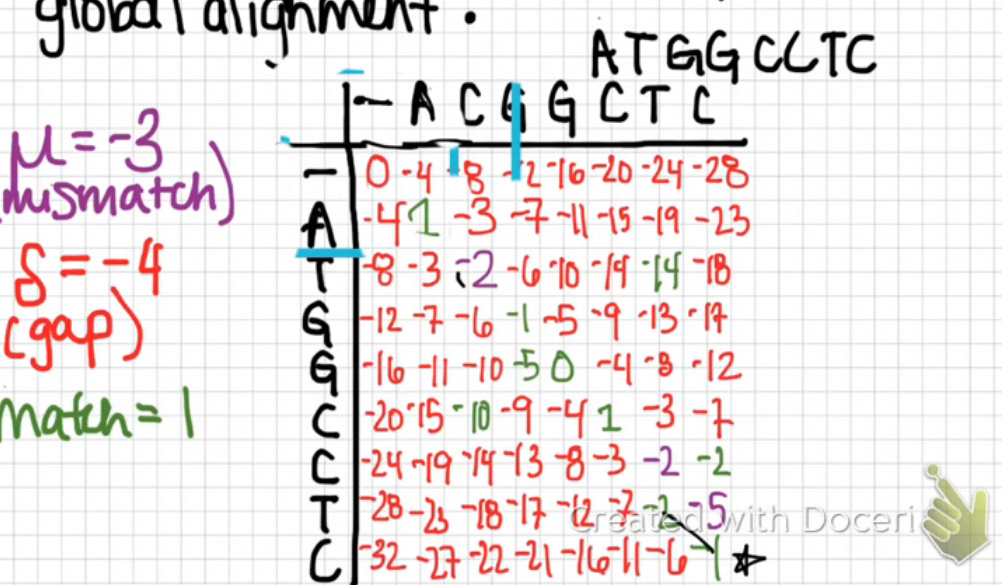 global alignment.
ATGGCCTC
- A C G G C T C
μ = -3
(mismatch)
δ = -4
(gap)
match = 1
- 0 -4 -8 -12 -16 -20 -24 -28
A -4 1 -3 -7 -11 -15 -19 -23
T -8 -3 -2 -6 -10 -14 -14 -18
G -12 -7 -6 -1 -5 -9 -13 -17
G -16 -11 -10 -5 0 -4 -8 -12
C -20 -15 -10 -9 -4 1 -3 -7
C -24 -19 -14 -13 -8 -3 -2 -2
T -28 -23 -18 -17 -12 -7 -2 -5
C -32 -27 -22 -21 -16 -11 -6 -1
Created with Doceri